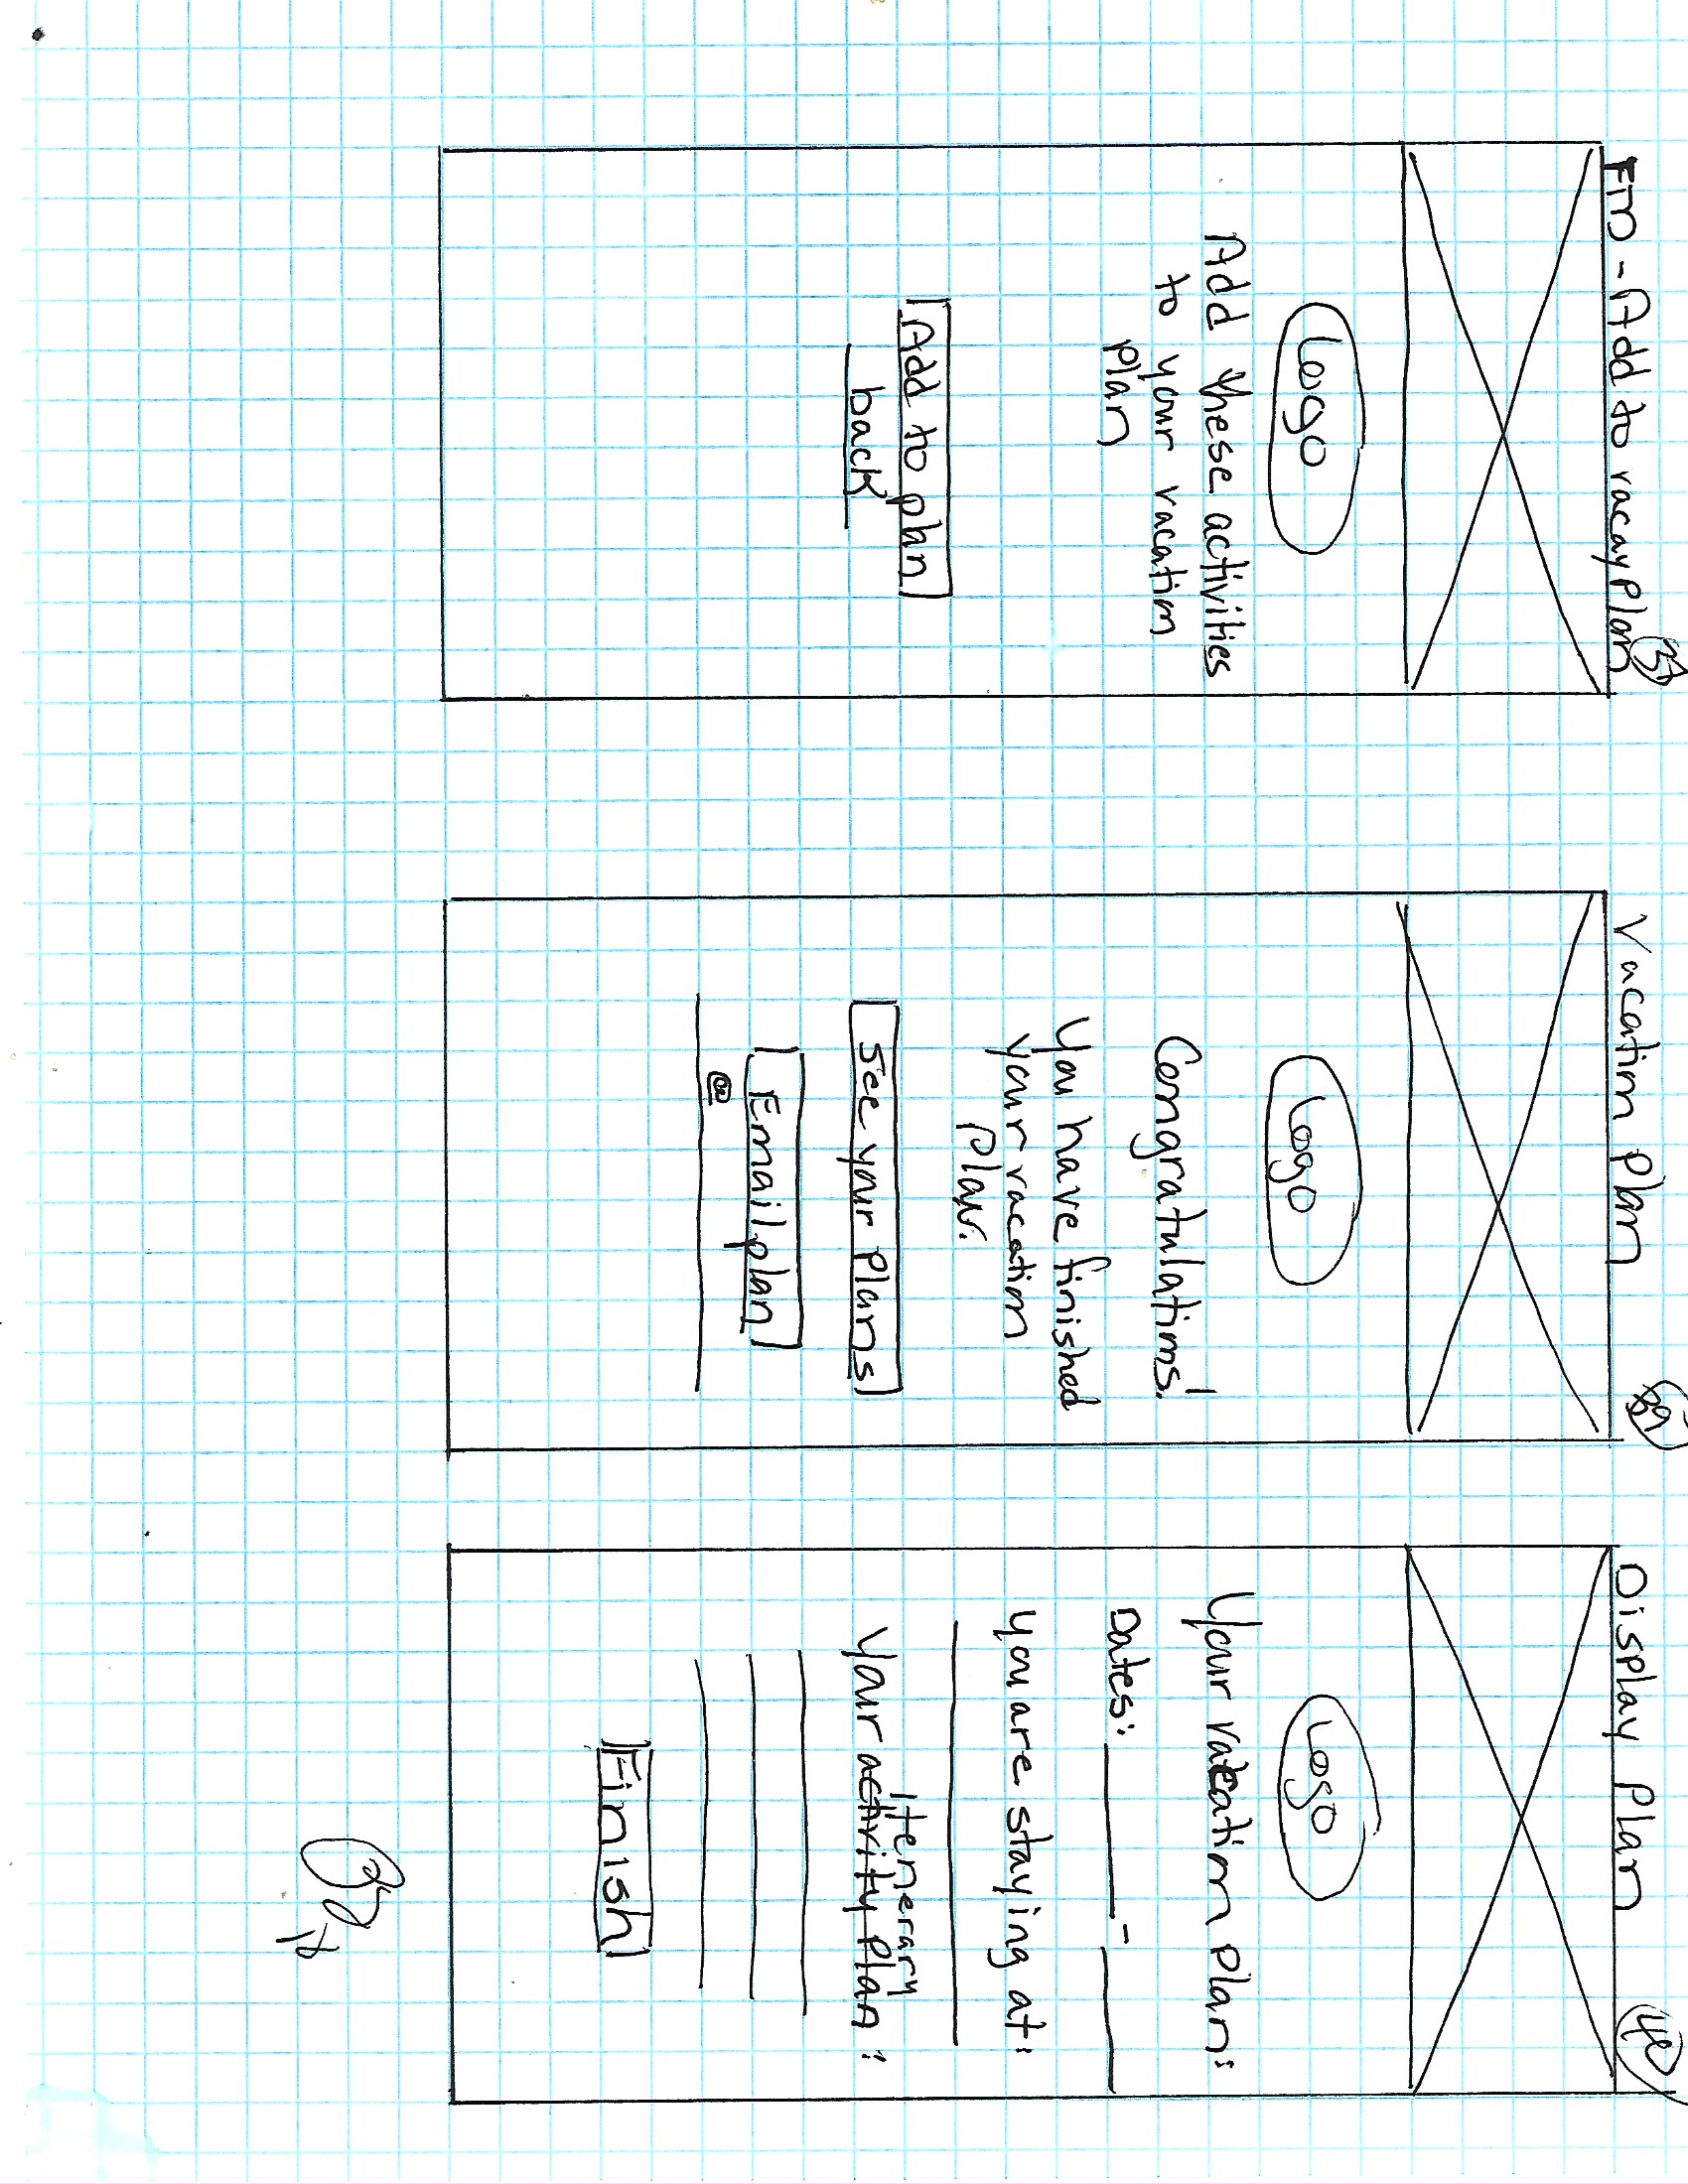 FTD - Add to vacay plan
Logo
Add these activities
to your vacation
plan
Add to plan
back
Vacation plan
39
Logo
Congratulations!
You have finished
your vacation
plan.
See your plans
Email plan
@
Display plan
40
Logo
Your vacation plan:
Dates: -
You are staying at:
Itenerary
Your activity plan :
Finish